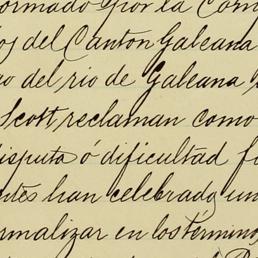 formado por la Com
los del Canton Galeana
do del rio de Galeana
Scott reclaman como
disputa ó dificultad f
entes han celebrado un
rmalizar en los término